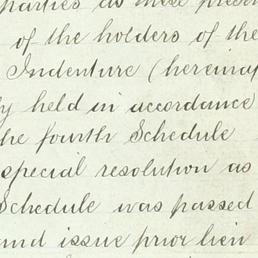 parties to these presen
of the holders of the
Indenture (hereinaf
ly held in accordance
the fourth Schedule
special resolution as
Schedule was passed
and issue prior lien